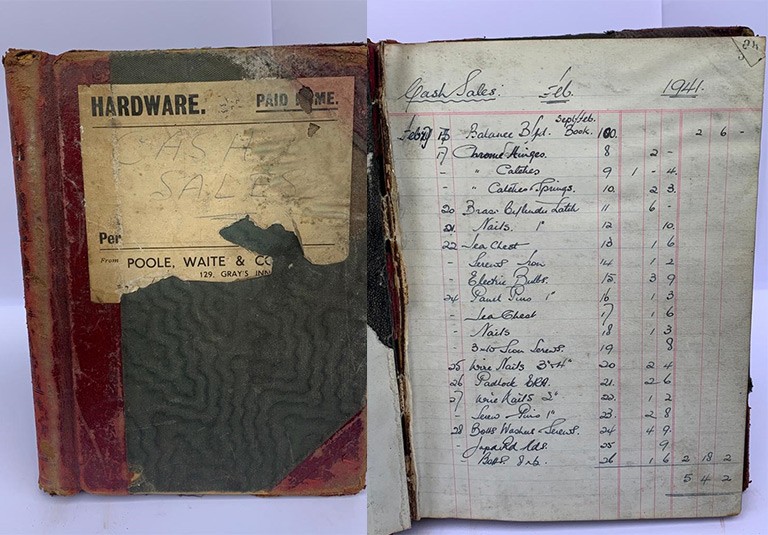 HARDWARE. PAID ME.
CASH
SALE
Per
From POOLE, WAITE & CO
129, GRAY'S INN
Cash Sales: Feb. 1941.
Sept/Feb.
Feb 15 Balance B/fd. Book. 100. 2 6 -
17 Chrome Hinges. 8 2 -
- " Catches 9 1 - 4.
- " Catches Springs. 10. 2 3.
20 Brass Cylinder Latch 11 6 -
21. Nails. 1" 12 10.
22 Tea Chest 13 1 6
- Screws Iron 14 1 2
Electric Bulbs. 15. 3 9
24 Panel Pins 1" 16 1 3
- Tea Chest 17 1 6
- Nails 18 1 3
- 3-10 Iron Screws. 19 8
25 Wire Nails 3"&4" 20 2 4
26 Padlock 21. 2 6
27 Wire Nails 2" 22. 1 2
- Screw Pins 1" 23. 2 8
28 Bolts Washers Screws. 24 4 9.
- Japanned 25 9.
- Bolts 26 1 6 2 18 2
5 4 2